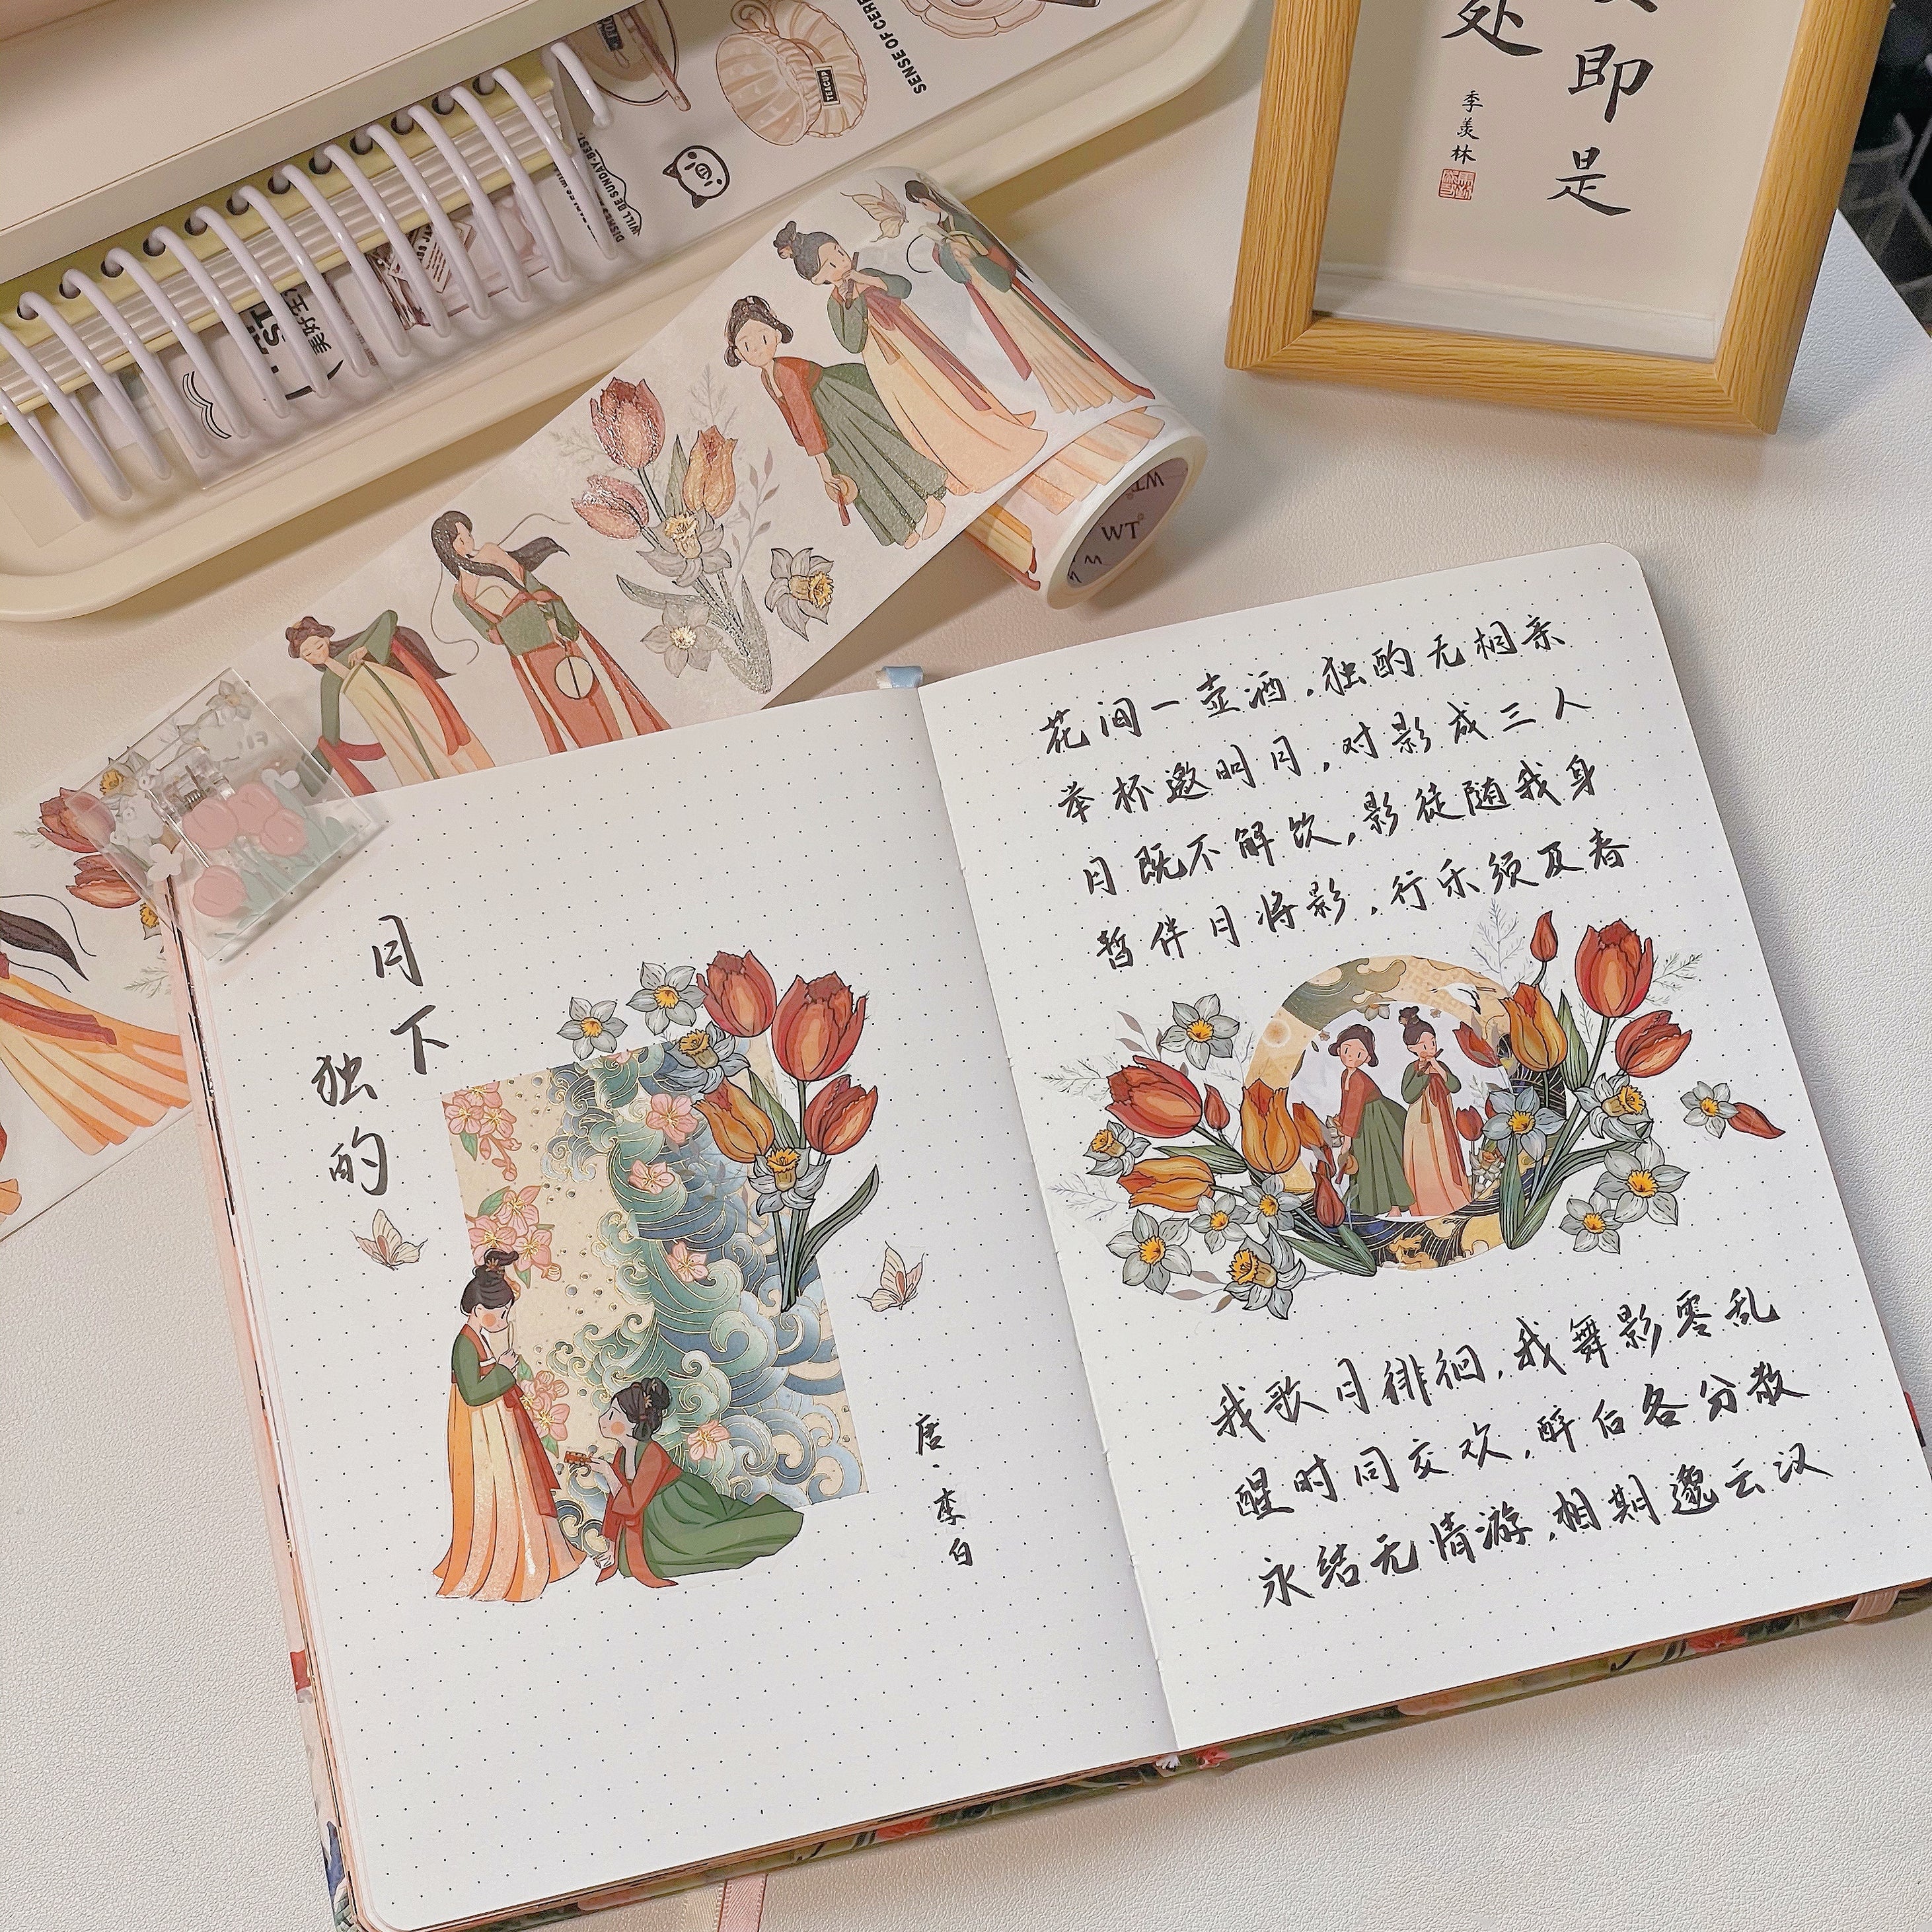 SENSE OF
TEACUP
WILL BE SUNDAY BEST.
美好
即是
处
季羡林
WT
WT
月下
独酌
唐·李白
花间一壶酒,独酌无相亲
举杯邀明月,对影成三人
月既不解饮,影徒随我身
暂伴月将影,行乐须及春
我歌月徘徊,我舞影零乱
醒时同交欢,醉后各分散
永结无情游,相期邈云汉